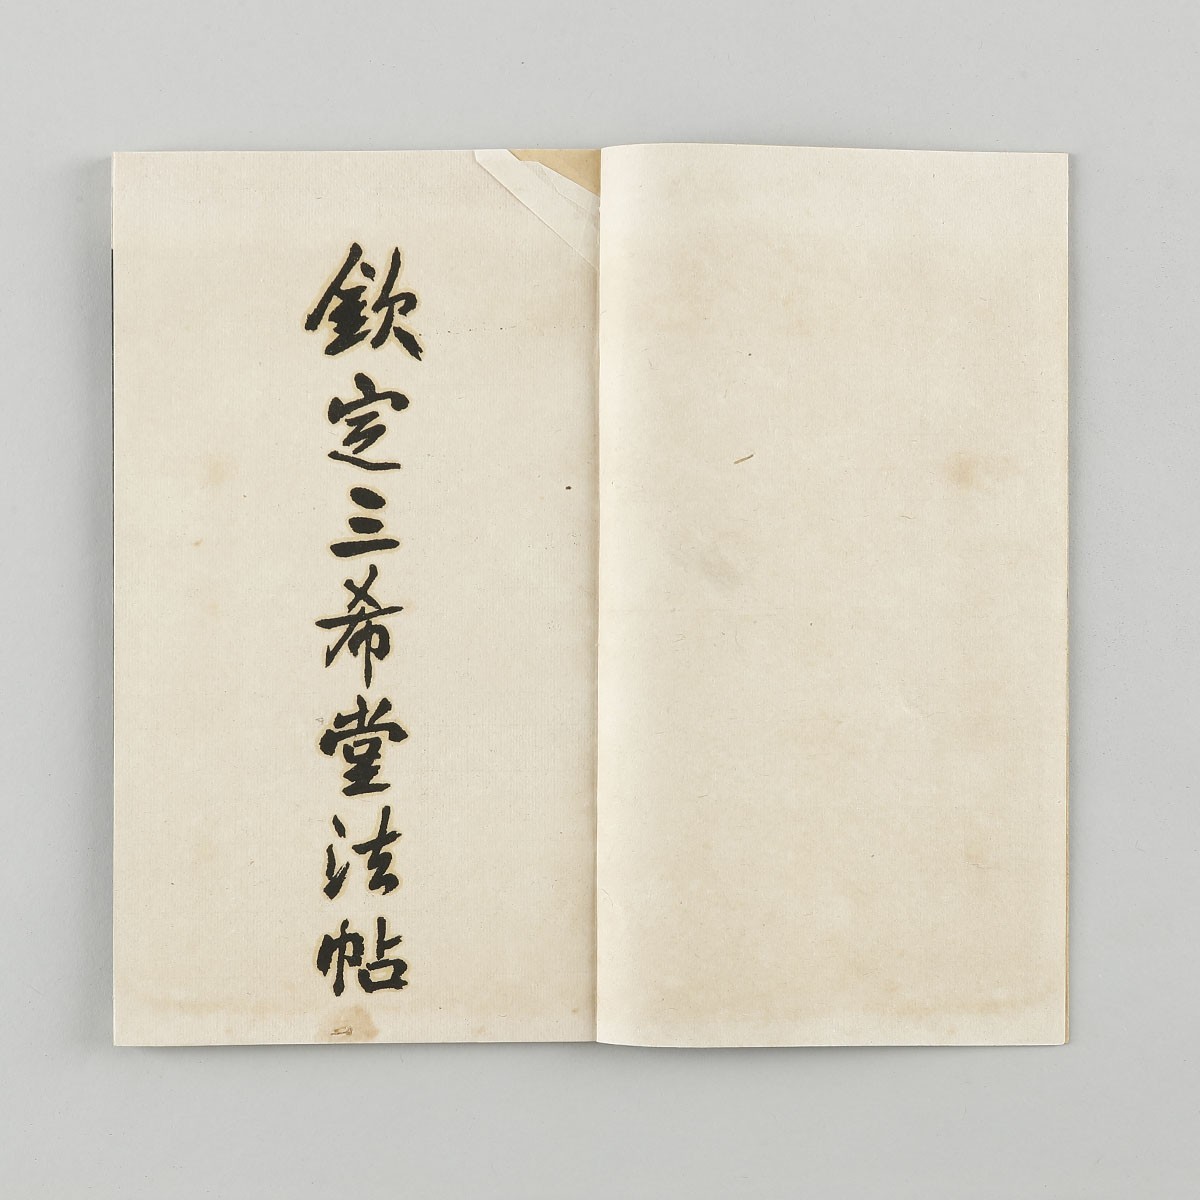 欽定三希堂法帖